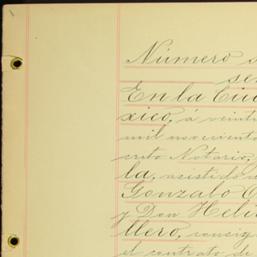 Número s
se
En la Ciu
xico, á veinti
mil noveciento
crito Notario,
la, asistido d
Gonzalo C
y Don Heli
llero, consig
el contrato de